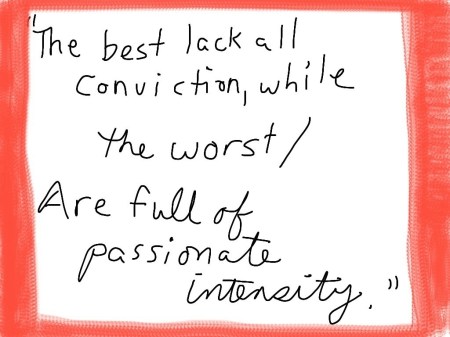 "The best lack all
Conviction, while
the worst/
Are full of
passionate
intensity."